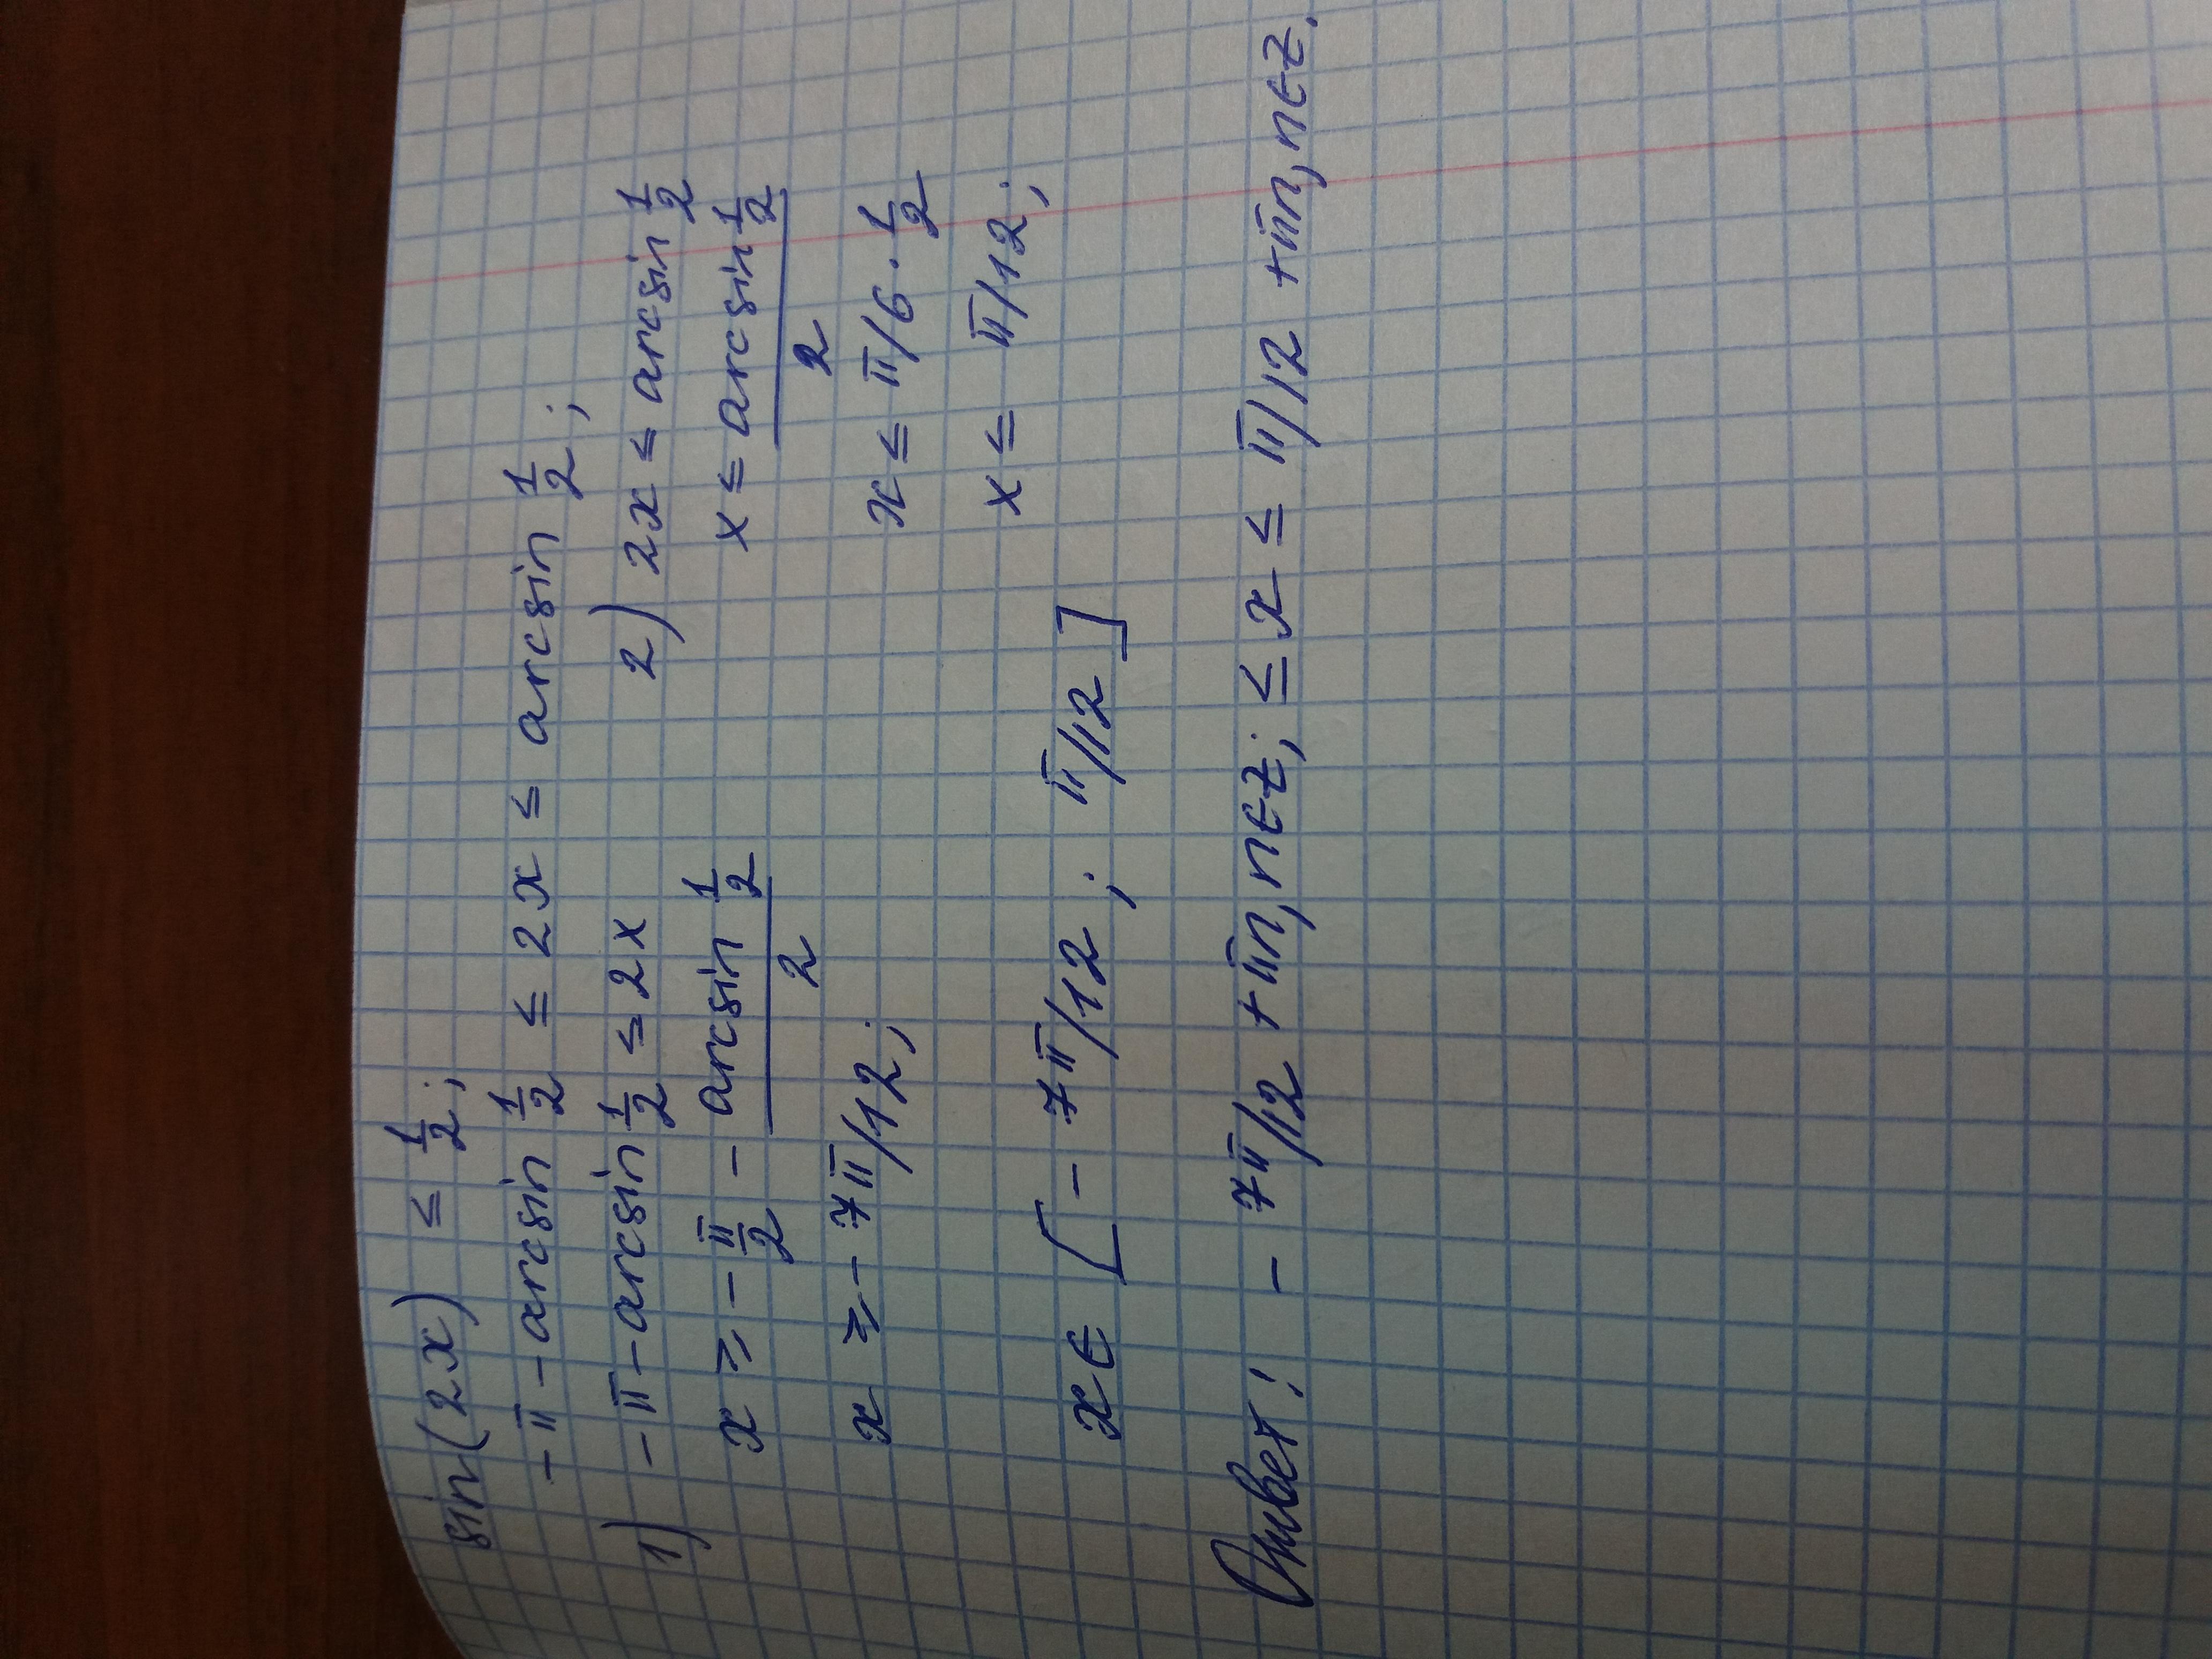 sin(2x) ≤ 1/2;
-π - arcsin 1/2 ≤ 2x ≤ arcsin 1/2;
1) -π - arcsin 1/2 ≤ 2x
2) 2x ≤ arcsin 1/2
x ≥ -π/2 - (arcsin 1/2)/2
x ≤ (arcsin 1/2)/2
x ≥ -7π/12;
x ≤ π/6 · 1/2
x ≤ π/12;
x ∈ [-7π/12; π/12]
Ответ: -7π/12 + πn, n∈Z; ≤ x ≤ π/12 + πn, n∈Z.